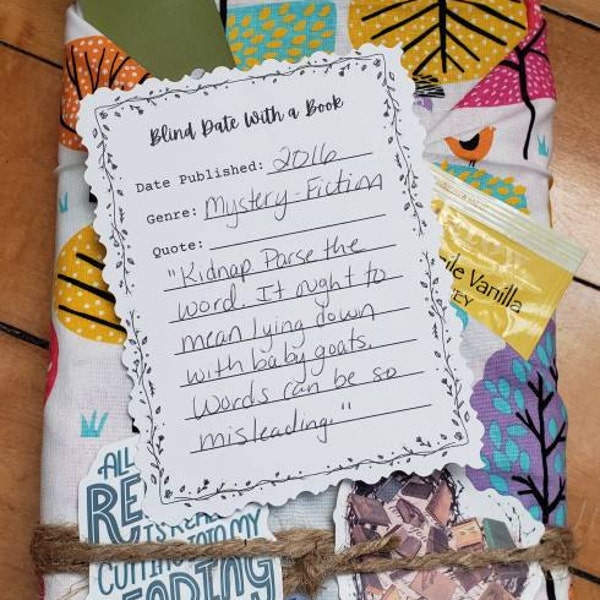 Blind Date With a Book
Date Published: 2016
Genre: Mystery-Fiction
Quote:
"Kidnap Parse the
word. It ought to
mean lying down
with baby goats.
Words can be so
misleading."
Vanilla
ALL
IS
CUTTING INTO MY
READING